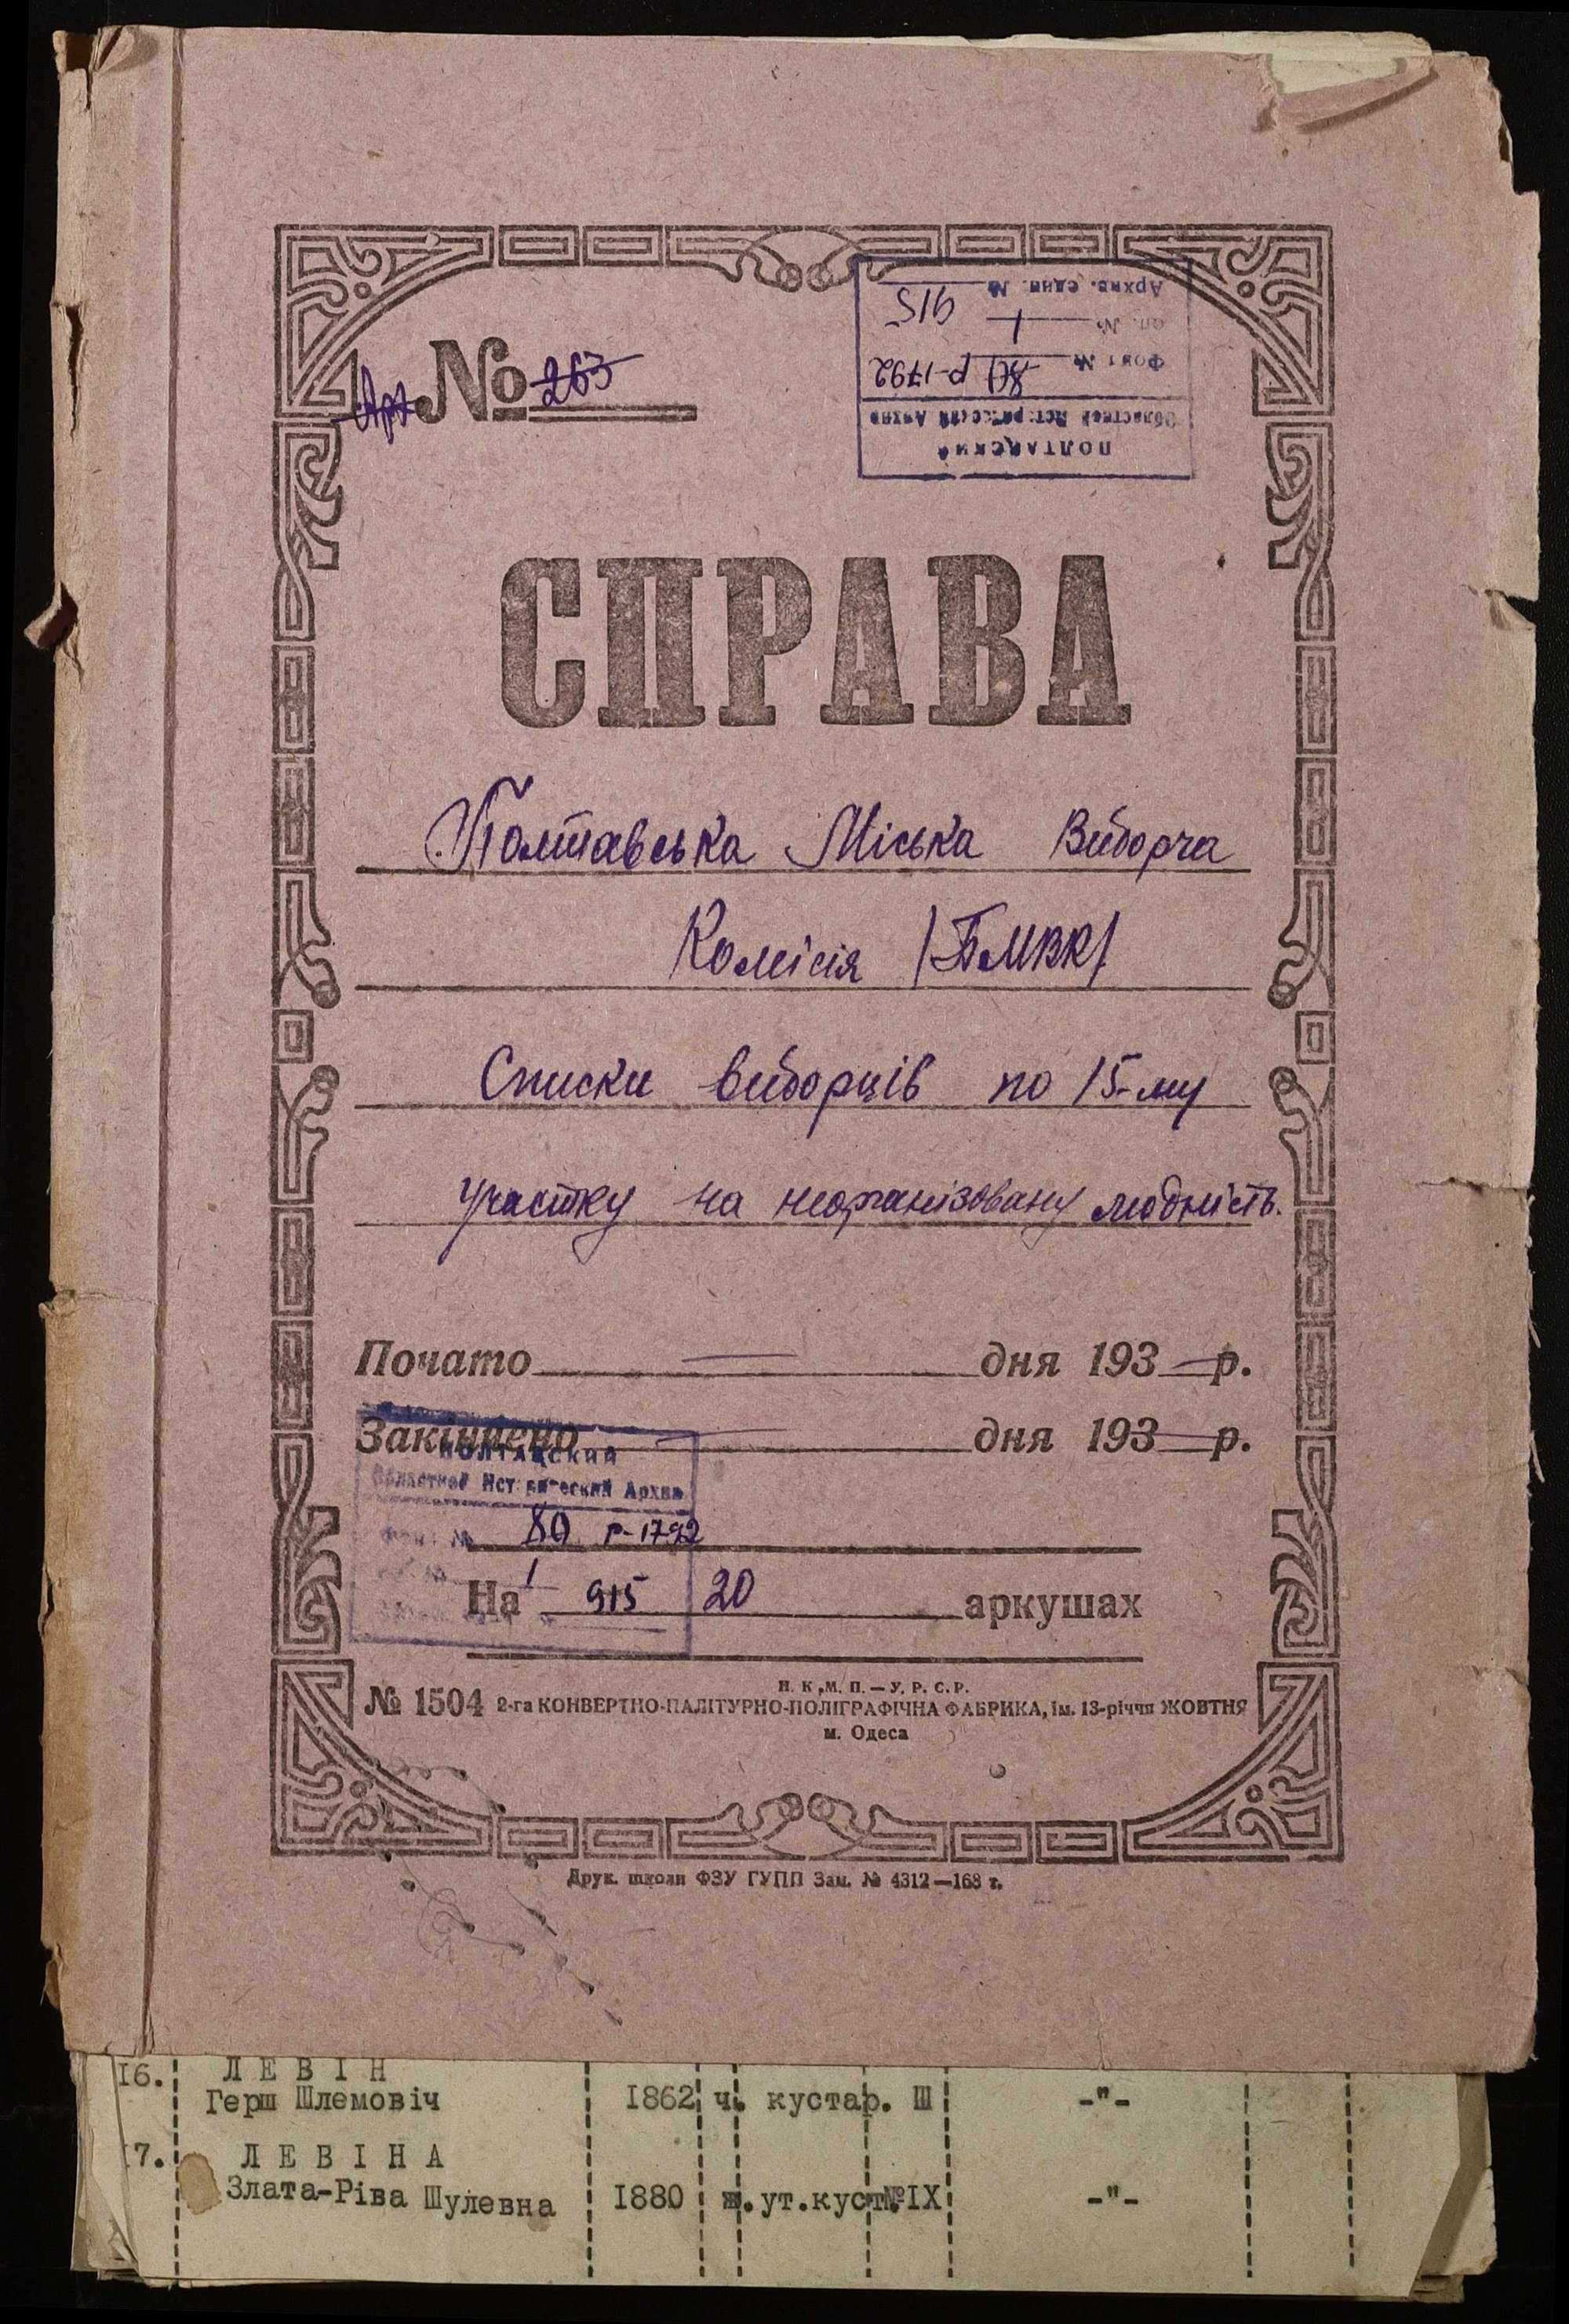 № 263
Архив. един. № 915
оп. № 1
Фонд № 80 р-1792
Областной Исторический Архив
ПОЛТАВСКИЙ
СПРАВА
Полтавська Міська Виборча
Комісія /БМВК/
Списки виборців по 15-му
участку на неорганізовану людність.
Почато — дня 193— р.
Закінчено — дня 193— р.
ПОЛТАВСКИЙ
Областной Исторический Архив
Фонд № 80 р-1792
1
915
На 20 аркушах
Н. К. М. П. — У. Р. С. Р.
№ 1504 2-га КОНВЕРТНО-ПАЛІТУРНО-ПОЛІГРАФІЧНА ФАБРИКА, ім. 13-річчя ЖОВТНЯ
м. Одеса
Друк. школи ФЗУ ГУПП Зам. № 4312—168 т.
16. ЛЕВІН
Герш Шлемовіч 1862 ч. кустар. Ш -"-
17. ЛЕВІНА
Злата-Ріва Шулевна 1880 ж. ут.куст.№IX -"-